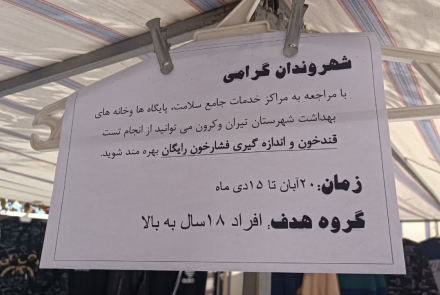 شهروندان گرامی
با مراجعه به مراکز خدمات جامع سلامت، پایگاه ها وخانه های
بهداشت شهرستان تیران وکرون می توانید از انجام تست
قندخون و اندازه گیری فشارخون رایگان بهره مند شوید.
زمان: ۲۰آبان تا ۱۵دی ماه
گروه هدف: افراد ۱۸سال به بالا